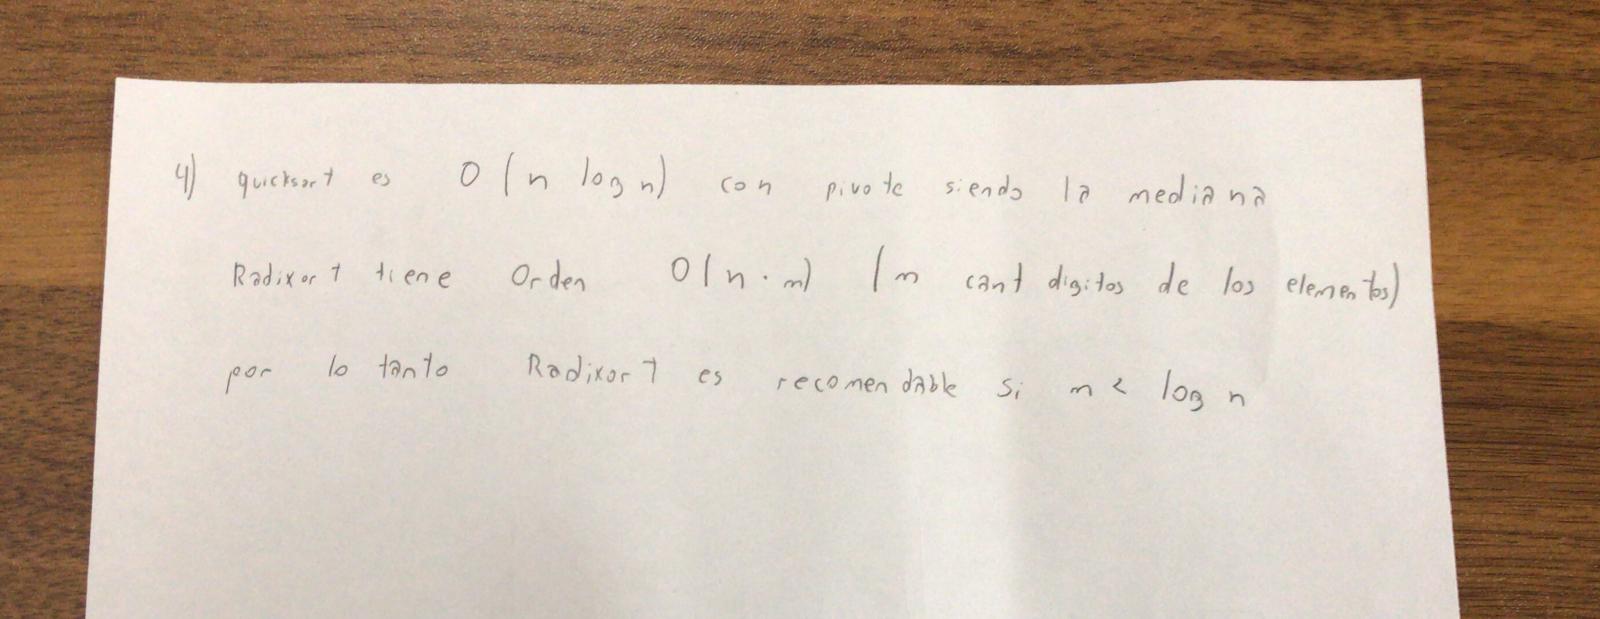 4) quicksort es O(n log n) con pivote siendo la mediana
Radixort tiene Orden O(n·m) (m cant digitos de los elementos)
por lo tanto Radixort es recomendable si m < log n